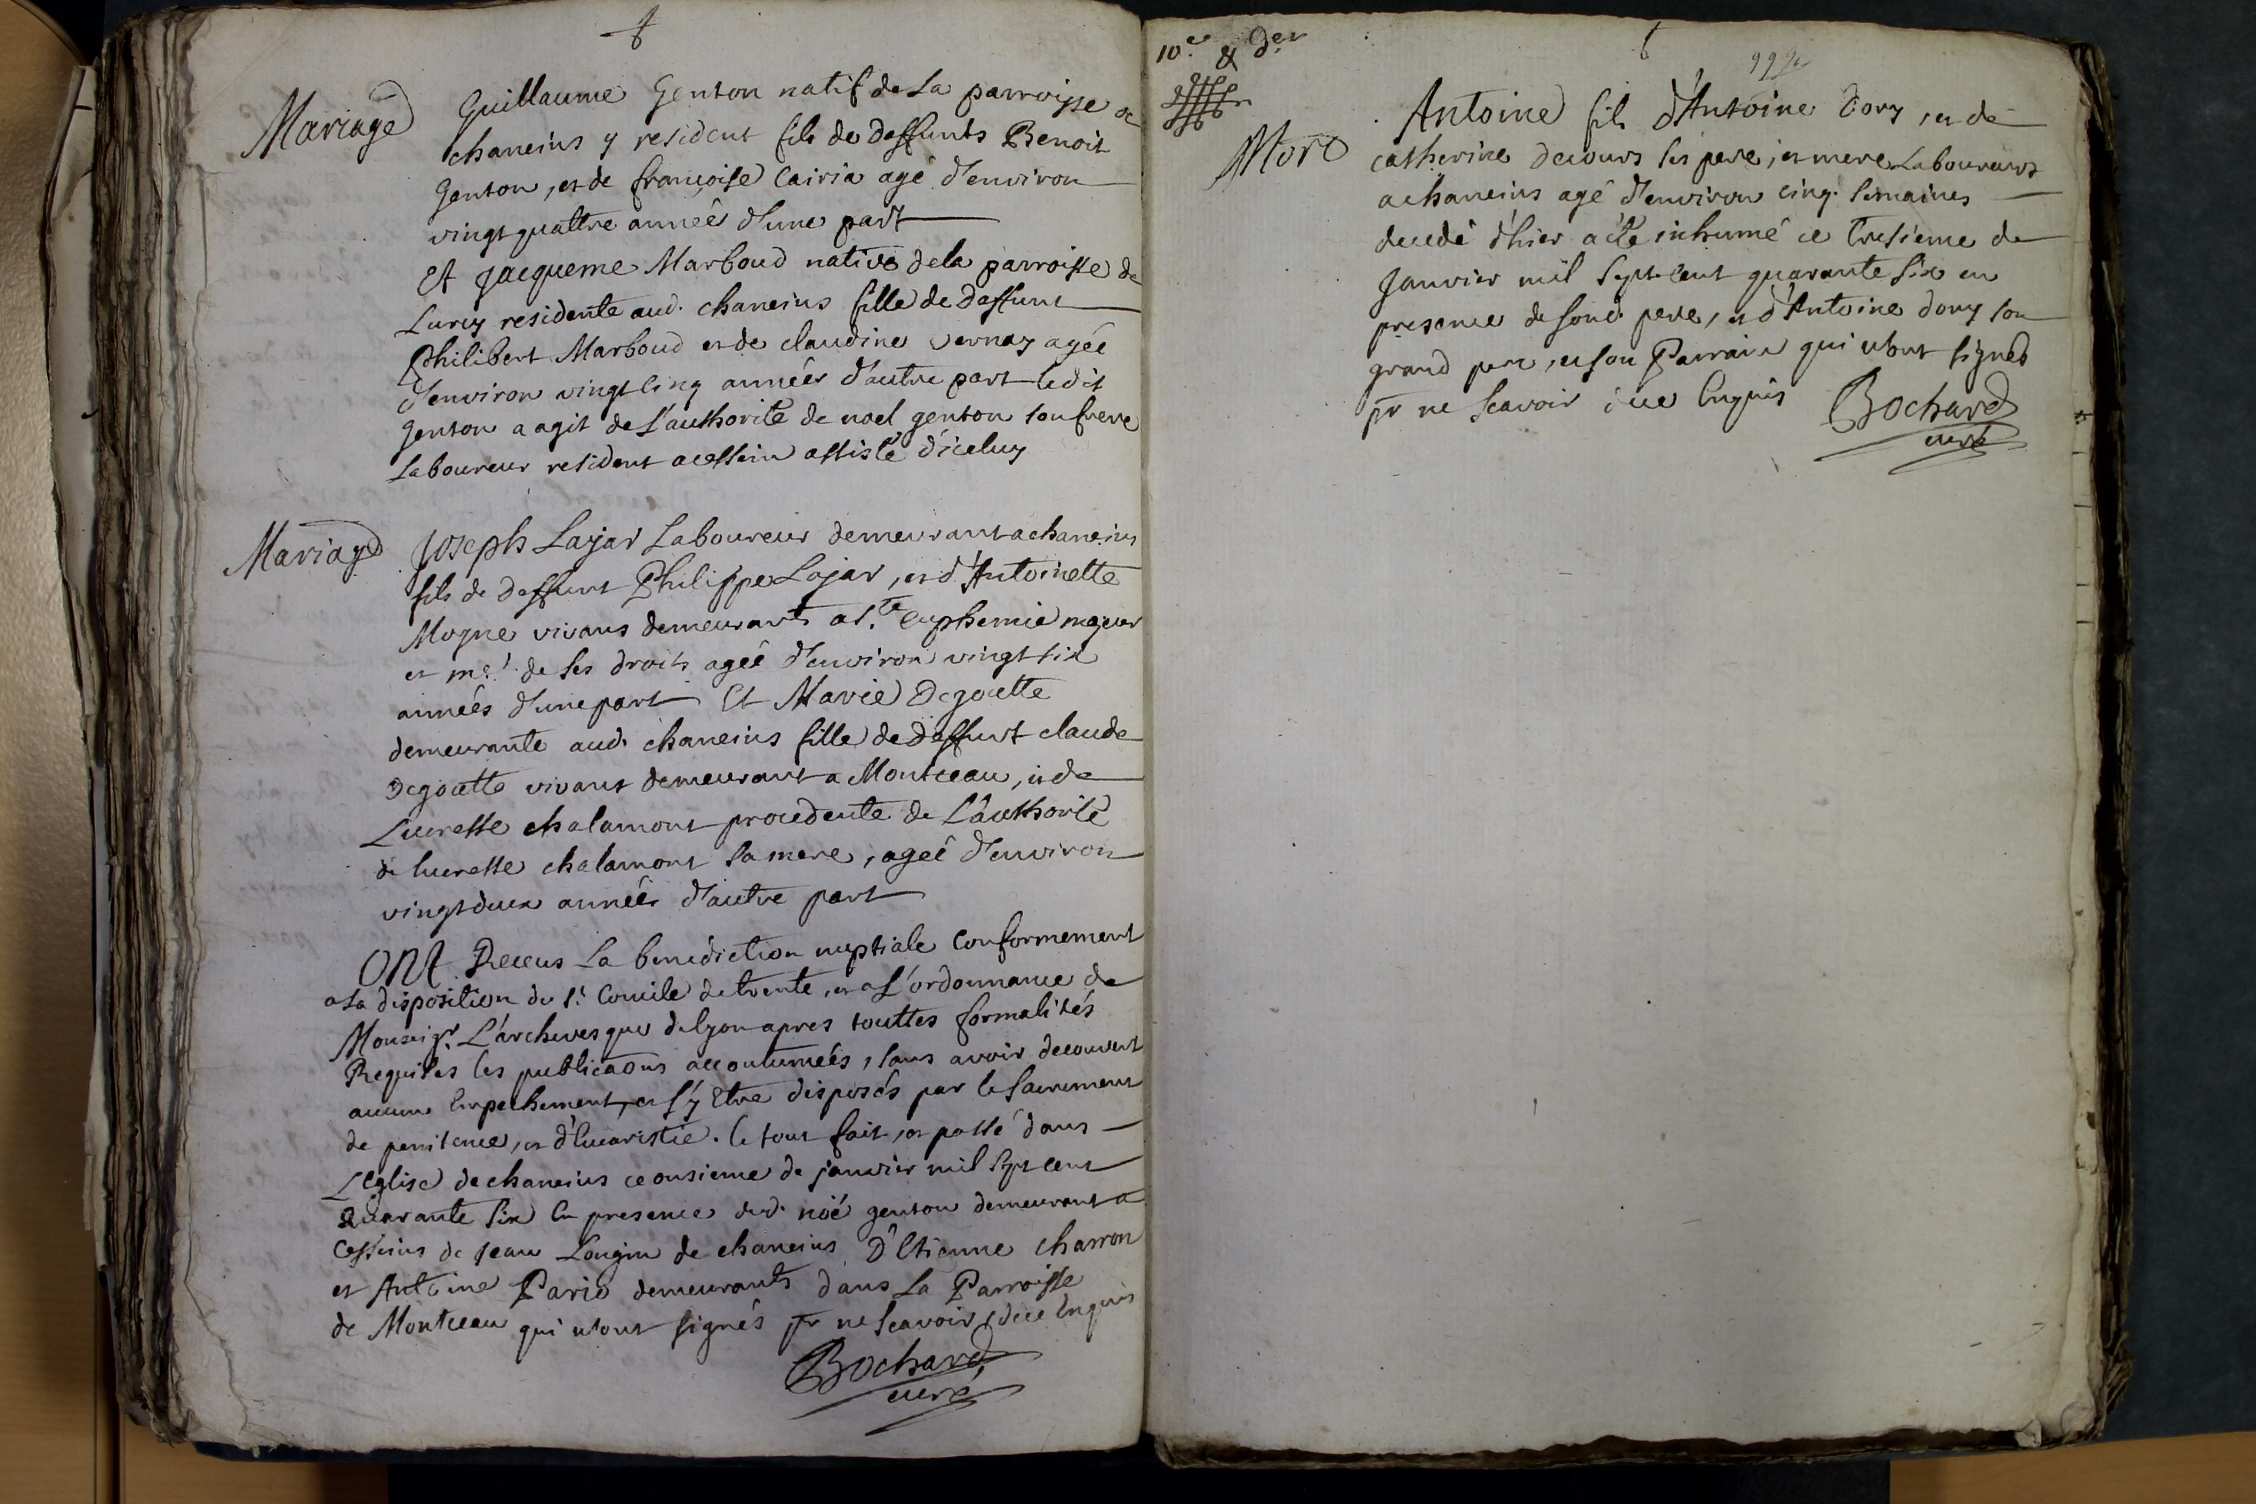 Mariage
Guillaume Genton natif de La parroisse de
chaneins y resident fils de deffunts Benoit
Genton, et de françoise Cairia agé d'environ
vingt quattre anneés d'une part
Et Jacqueme Marboud native dela parroisse de
Lurcy residente aud. chaneins fille de deffunt
Philibert Marboud et de claudine vernay agée
d'environ vingt cinq anneés d'autre part ledit
Genton a agit de l'authorité de noel genton son frere
Laboureur resident a cessein assisté d'iceluy
Mariage
Joseph Lajar Laboureur demeurant a chaneins
fils de deffunt Philippe Lajar, et d'Antoinette
Mogne vivans demeurants a Ste. Euphemie majeur
et me. de ses droits ageé d'environ vingt six
anneés d'une part Et Marie Degoutte
demeurante aud. chaneins fille de deffunt claude
Degoutte vivant demeurant a Montceau, et de
Lucresse chalamont procedente de L'authorité
de lucresse chalamont sa mere, ageé d'environ
vingt deux anneés d'autre part
ONt Receus La benediction nuptiale Conformement
a La disposition du St. Concile de trente, et a L'ordonnance de
Monseigr. L'archevesque de lyon apres touttes formalités
Requises les publicaons accoutumeés, sans avoir decouvert
aucun Empechement, et s'y Etre disposés par le sacrement
de penitence, et d'Eucaristie. le tout fait, et passé dans
L'eglise de chaneins ce onsieme de janvier mil sept cent
Quarante six En presence dud. noé genton demeurant a
Cesseins de jean Longin de chaneins D'Etienne charron
et Antoine Pario demeurants dans La Parroisse
de Montceau qui n'ont signés pr ne scavoir, dece Enquis
Bochard
curé
10e. & der
992
Mort
Antoine fils d'Antoine Dory, et de
catherine decours ses pere, et mere Laboureurs
a chaneins agé d'environ cinq semaines
decedé d'hier a eté inhumé ce tresieme de
Janvier mil sept cent quarante six en
presence de sond. pere, et d'Antoine dory son
grand pere, et son Parrain qui n'ont signés
pr ne scavoir dece Enquis
Bochard
curé